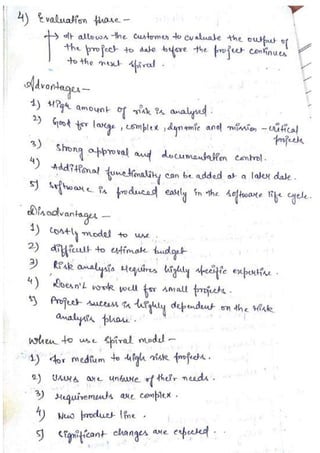 4) Evaluation phase -
→ It allows the customer to evaluate the output of
the project to date before the project continues
to the next spiral.
Advantages -
1) High amount of risk is analysed.
2) Good for large, complex, dynamic and mission - critical
projects
3) Strong approval and documentation control.
4) Additional functionality can be added at a later date.
5) Software is produced early in the software life cycle.
Disadvantages -
1) Costly model to use.
2) difficult to estimate budget
3) Risk analysis requires highly specific expertise.
4) Doesn't work well for small projects.
5) Project success is highly dependent on the risk
analysis phase.
When to use spiral model -
1) for medium to high risk projects.
2) Users are unsure of their needs.
3) requirements are complex.
4) New product line.
5) significant changes are expected.